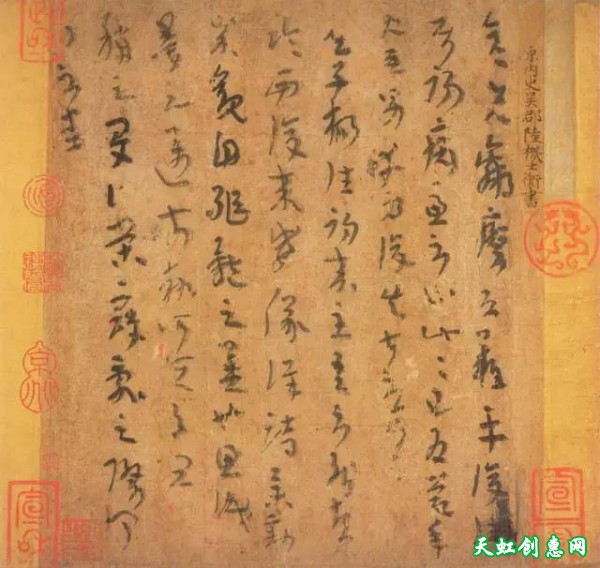 內史吳郡陸機士衡書
彦先羸瘵恐難平復往屬
初病慮不止此此已為慶承
使唯男幸為復失前憂耳
吳子楊往初來主吾不能盡
臨西復來威儀詳跱舉動
成觀自軀體之美也思識
量之邁前勢所恒有宜
稱之夏伯榮寇亂之際聞
問不悉
宣和
天虹创惠网